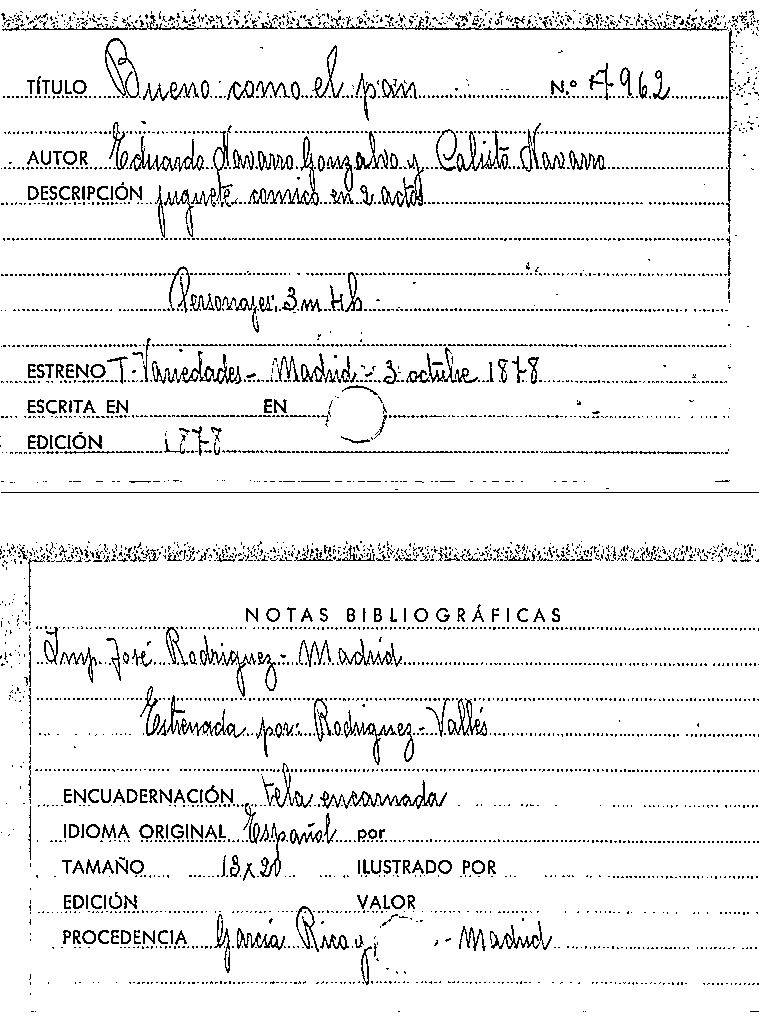 TÍTULO Bueno como el pan N.º 7962
AUTOR Eduardo Navarro Gonzalvo y Calisto Navarro
DESCRIPCIÓN juguete comico en 2 actos
Personajes: 3 m 7 h
ESTRENO T. Variedades - Madrid - 3 octubre 1878
ESCRITA EN EN
EDICIÓN 1878
NOTAS BIBLIOGRÁFICAS
Imp. José Rodriguez - Madrid
Estrenada por: Rodriguez - Vallés
ENCUADERNACIÓN tela encarnada
IDIOMA ORIGINAL Español por
TAMAÑO 13 x 20 ILUSTRADO POR
EDICIÓN VALOR
PROCEDENCIA García Rico y - Madrid